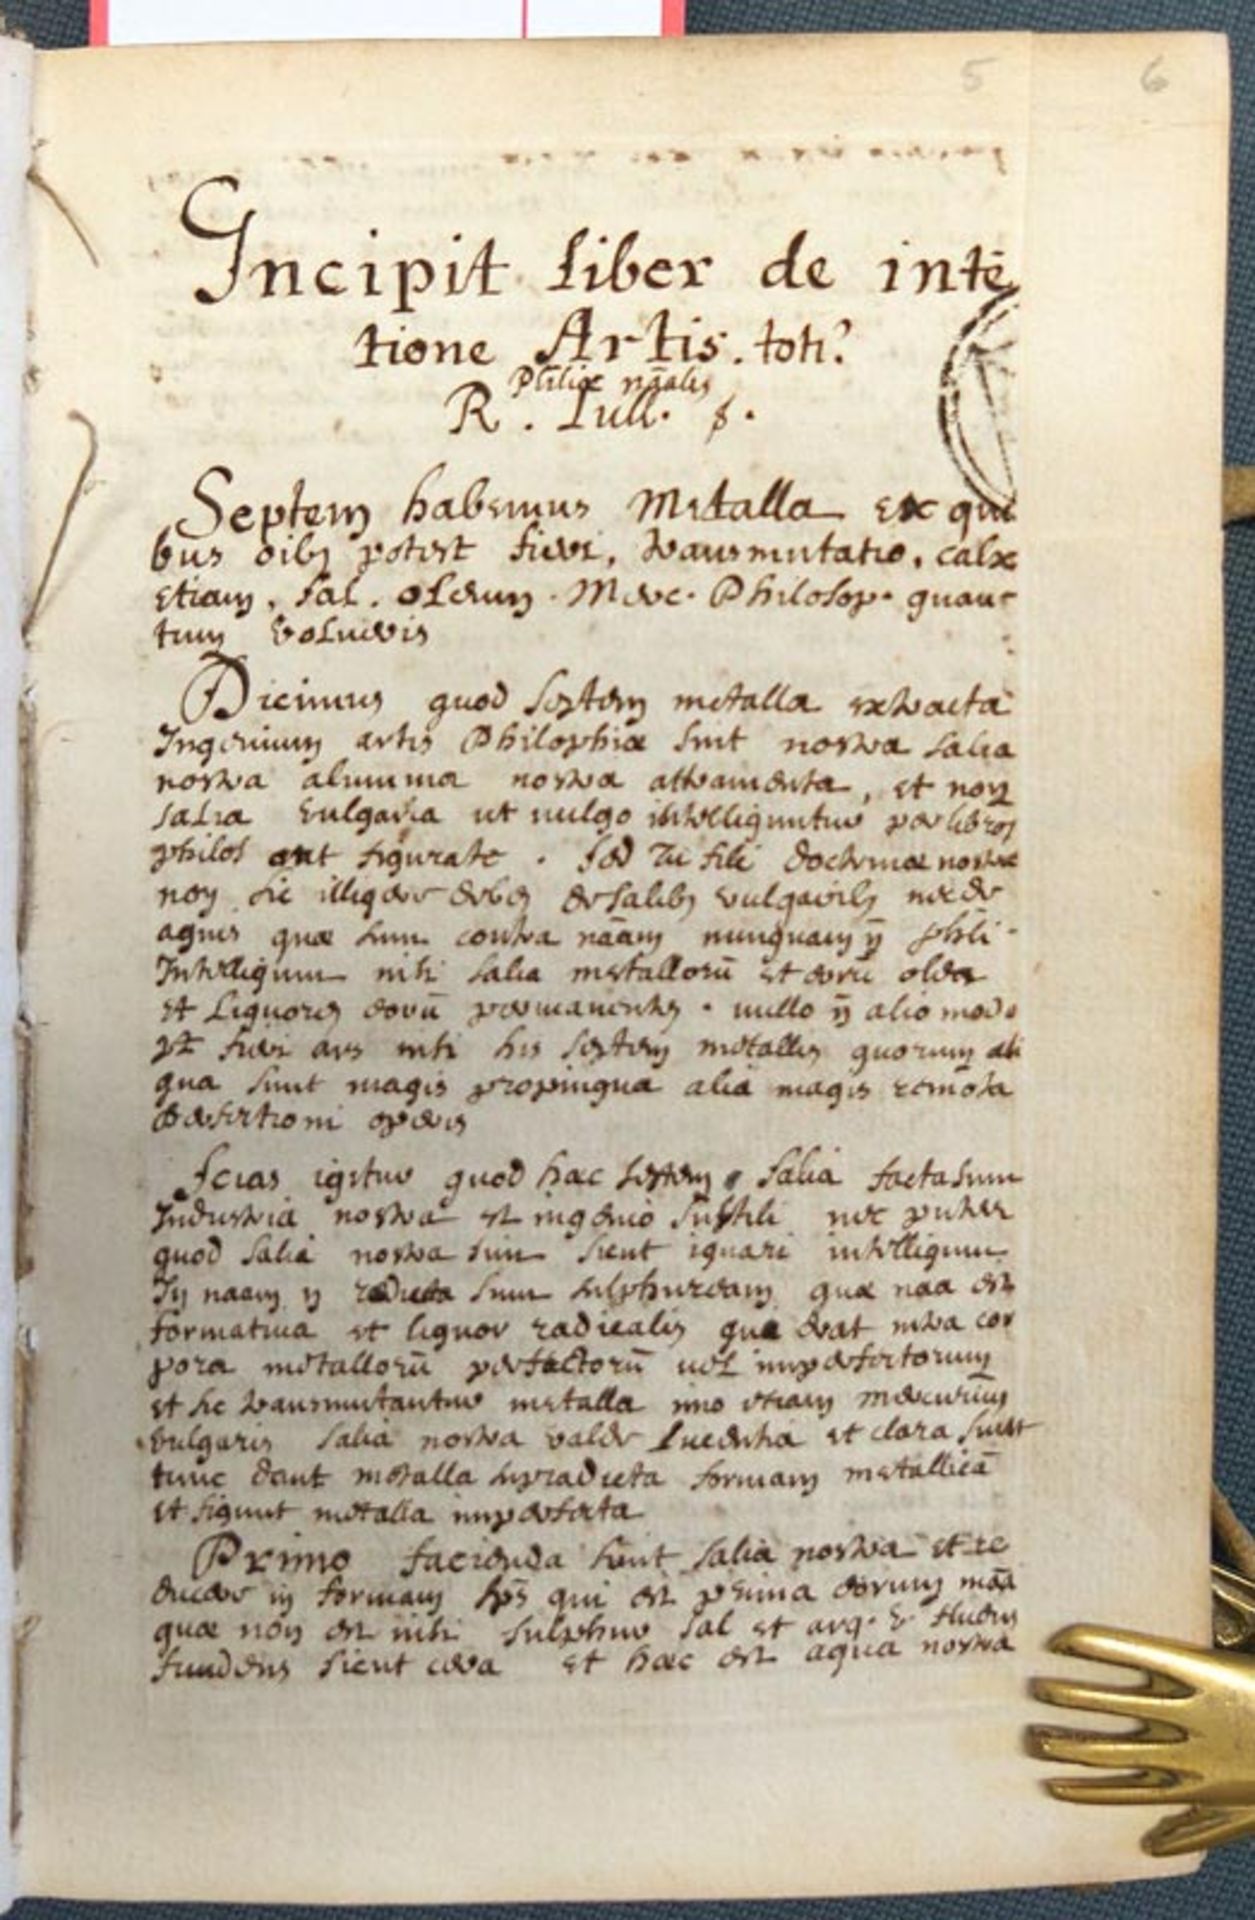 5 6
Incipit Liber de intē
tione Artis. toti?
Phliæ nāalis
R. Lull. s.
Septem habemus Metalla ex qui
bus oib; potest fieri, transmutatio, calx
etiam, Sal. oleum. Merc. Philosop. quan-
tum volueris
Dicimus quod septem metalla extracta
Ingenium artis Philophiæ sint nostra salia
nostra alumina nostra attramenta, et non
salia vulgaria ut vulgo intelliguntur per libros
philos figurate. Sed Tu fili doctrinæ nostræ
non sic debes de salib; vulgarib; nec de
aquis quæ sunt contra nāam nunquam phli.
Intelligunt nisi salia metallorū et eorū olea
et Liquores eorū permanentes. nullo alio modo
pt fieri ars nisi his septem metallis quorum ali
qua sunt magis propinqua alia magis remota
perfectioni operis
Scias igitur quod hæc septem salia facta sunt
Industria nostra et ingenio subtili nec putes
quod salia nostra sint sicut ignari intelligunt
In naam reducta sunt sulphuream quæ naa est
formativa et liquor radicalis quæ erat intra cor
pora metallorū perfectorū vel imperfectorum
et sic transmutantur metalla imo etiam mercurium
vulgaris Salia nostra valde lucentia et clara sunt
tunc dant metalla supradicta formam metallicā
et figunt metalla imperfecta
Primo facienda sunt salia nostra et re
ducere in formam sps qui est prima eorum māa
quæ non est nisi sulphur sal et arg. v. fluens
fundens sicut cera et hæc est aqua nostra